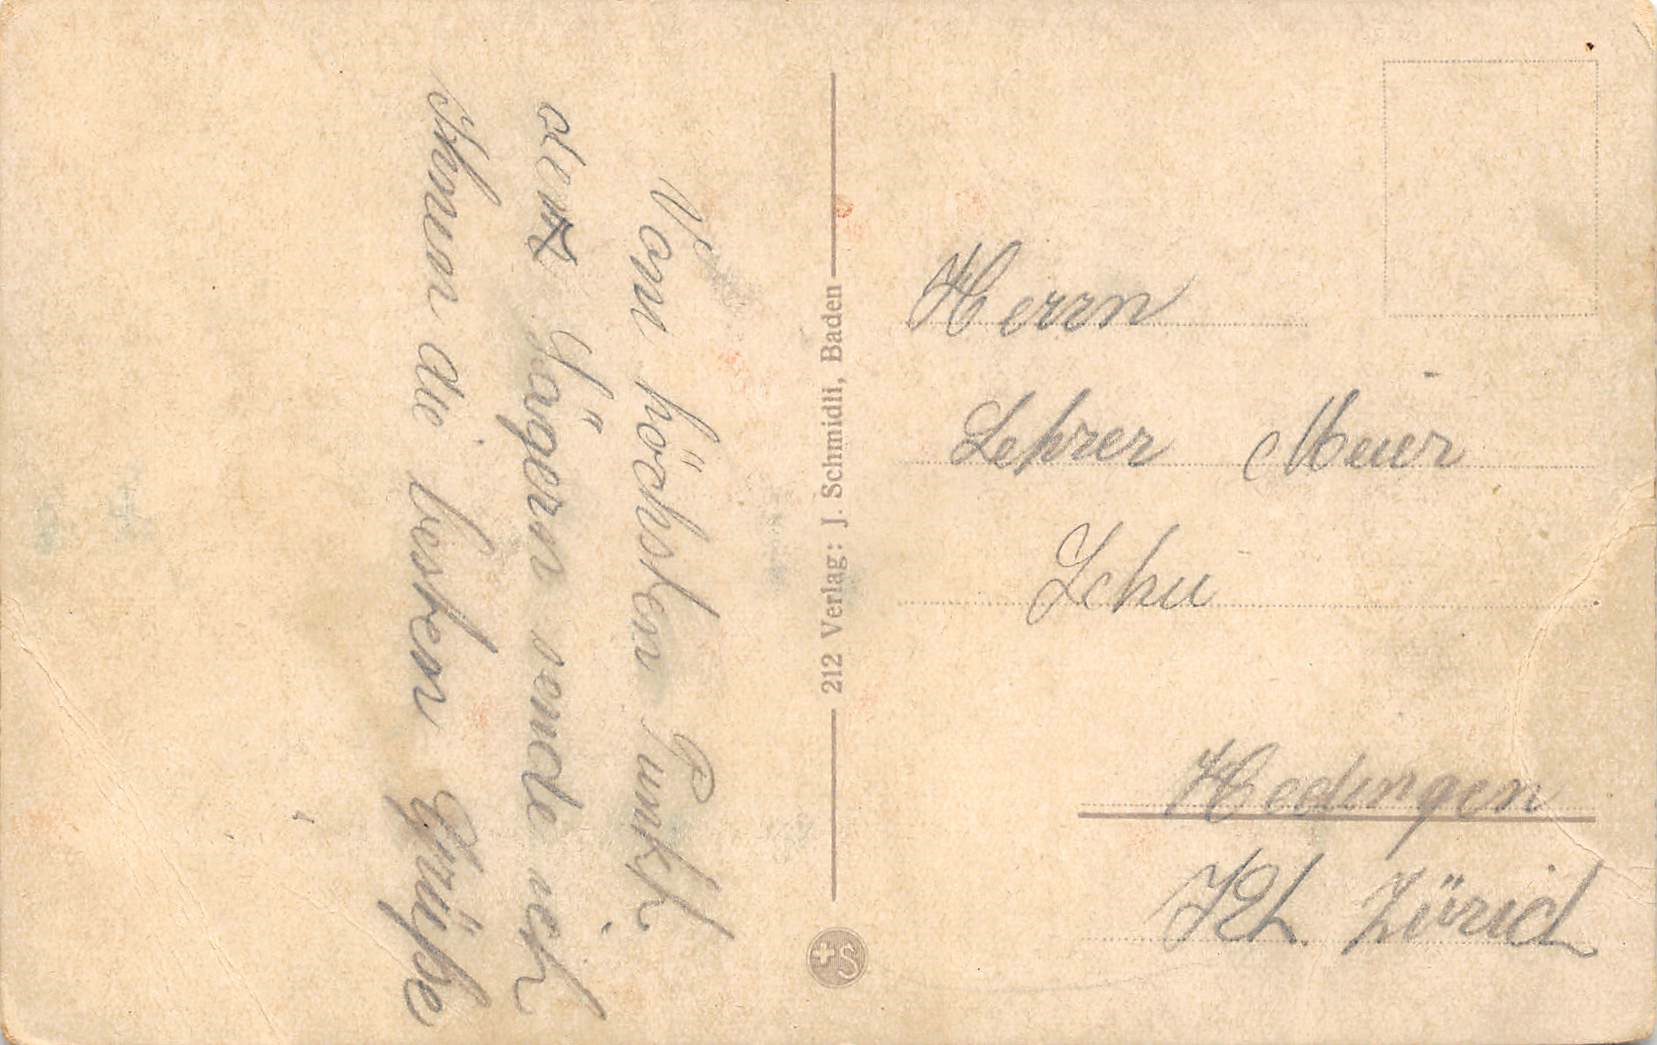 Vom höchsten Punkt
der Lägern sende ich
Ihnen die besten Grüße
212 Verlag: J. Schmidli, Baden
S
Herrn
Lehrer Meier
Hedingen
Kt. Zürich